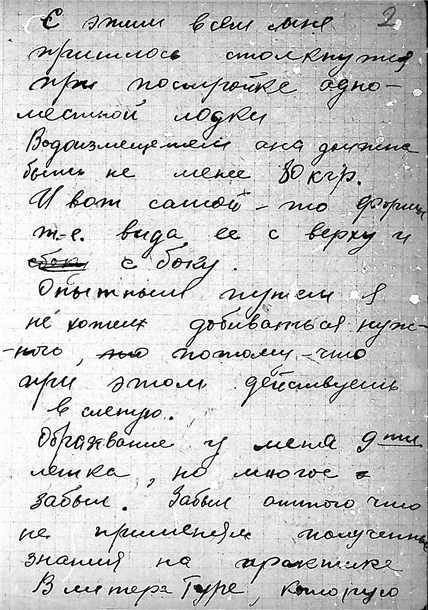 2
С этим всем мне
пришлось столкнутся
при постройке одно-
местной лодки
Водоизмещением она должна
быть не менее 80 кгр.
И вот самой-то формы
т.-е. вида ее с верху и
с боку.
Опытным путем я
не хотел добиваться нуж-
-ного, потому-что
при этом действуешь
в слепую.
Образование у меня 9ти
летка, но многое
забыл. Забыл оттого что
не применял полученные
знания на практике
В литературе, которую